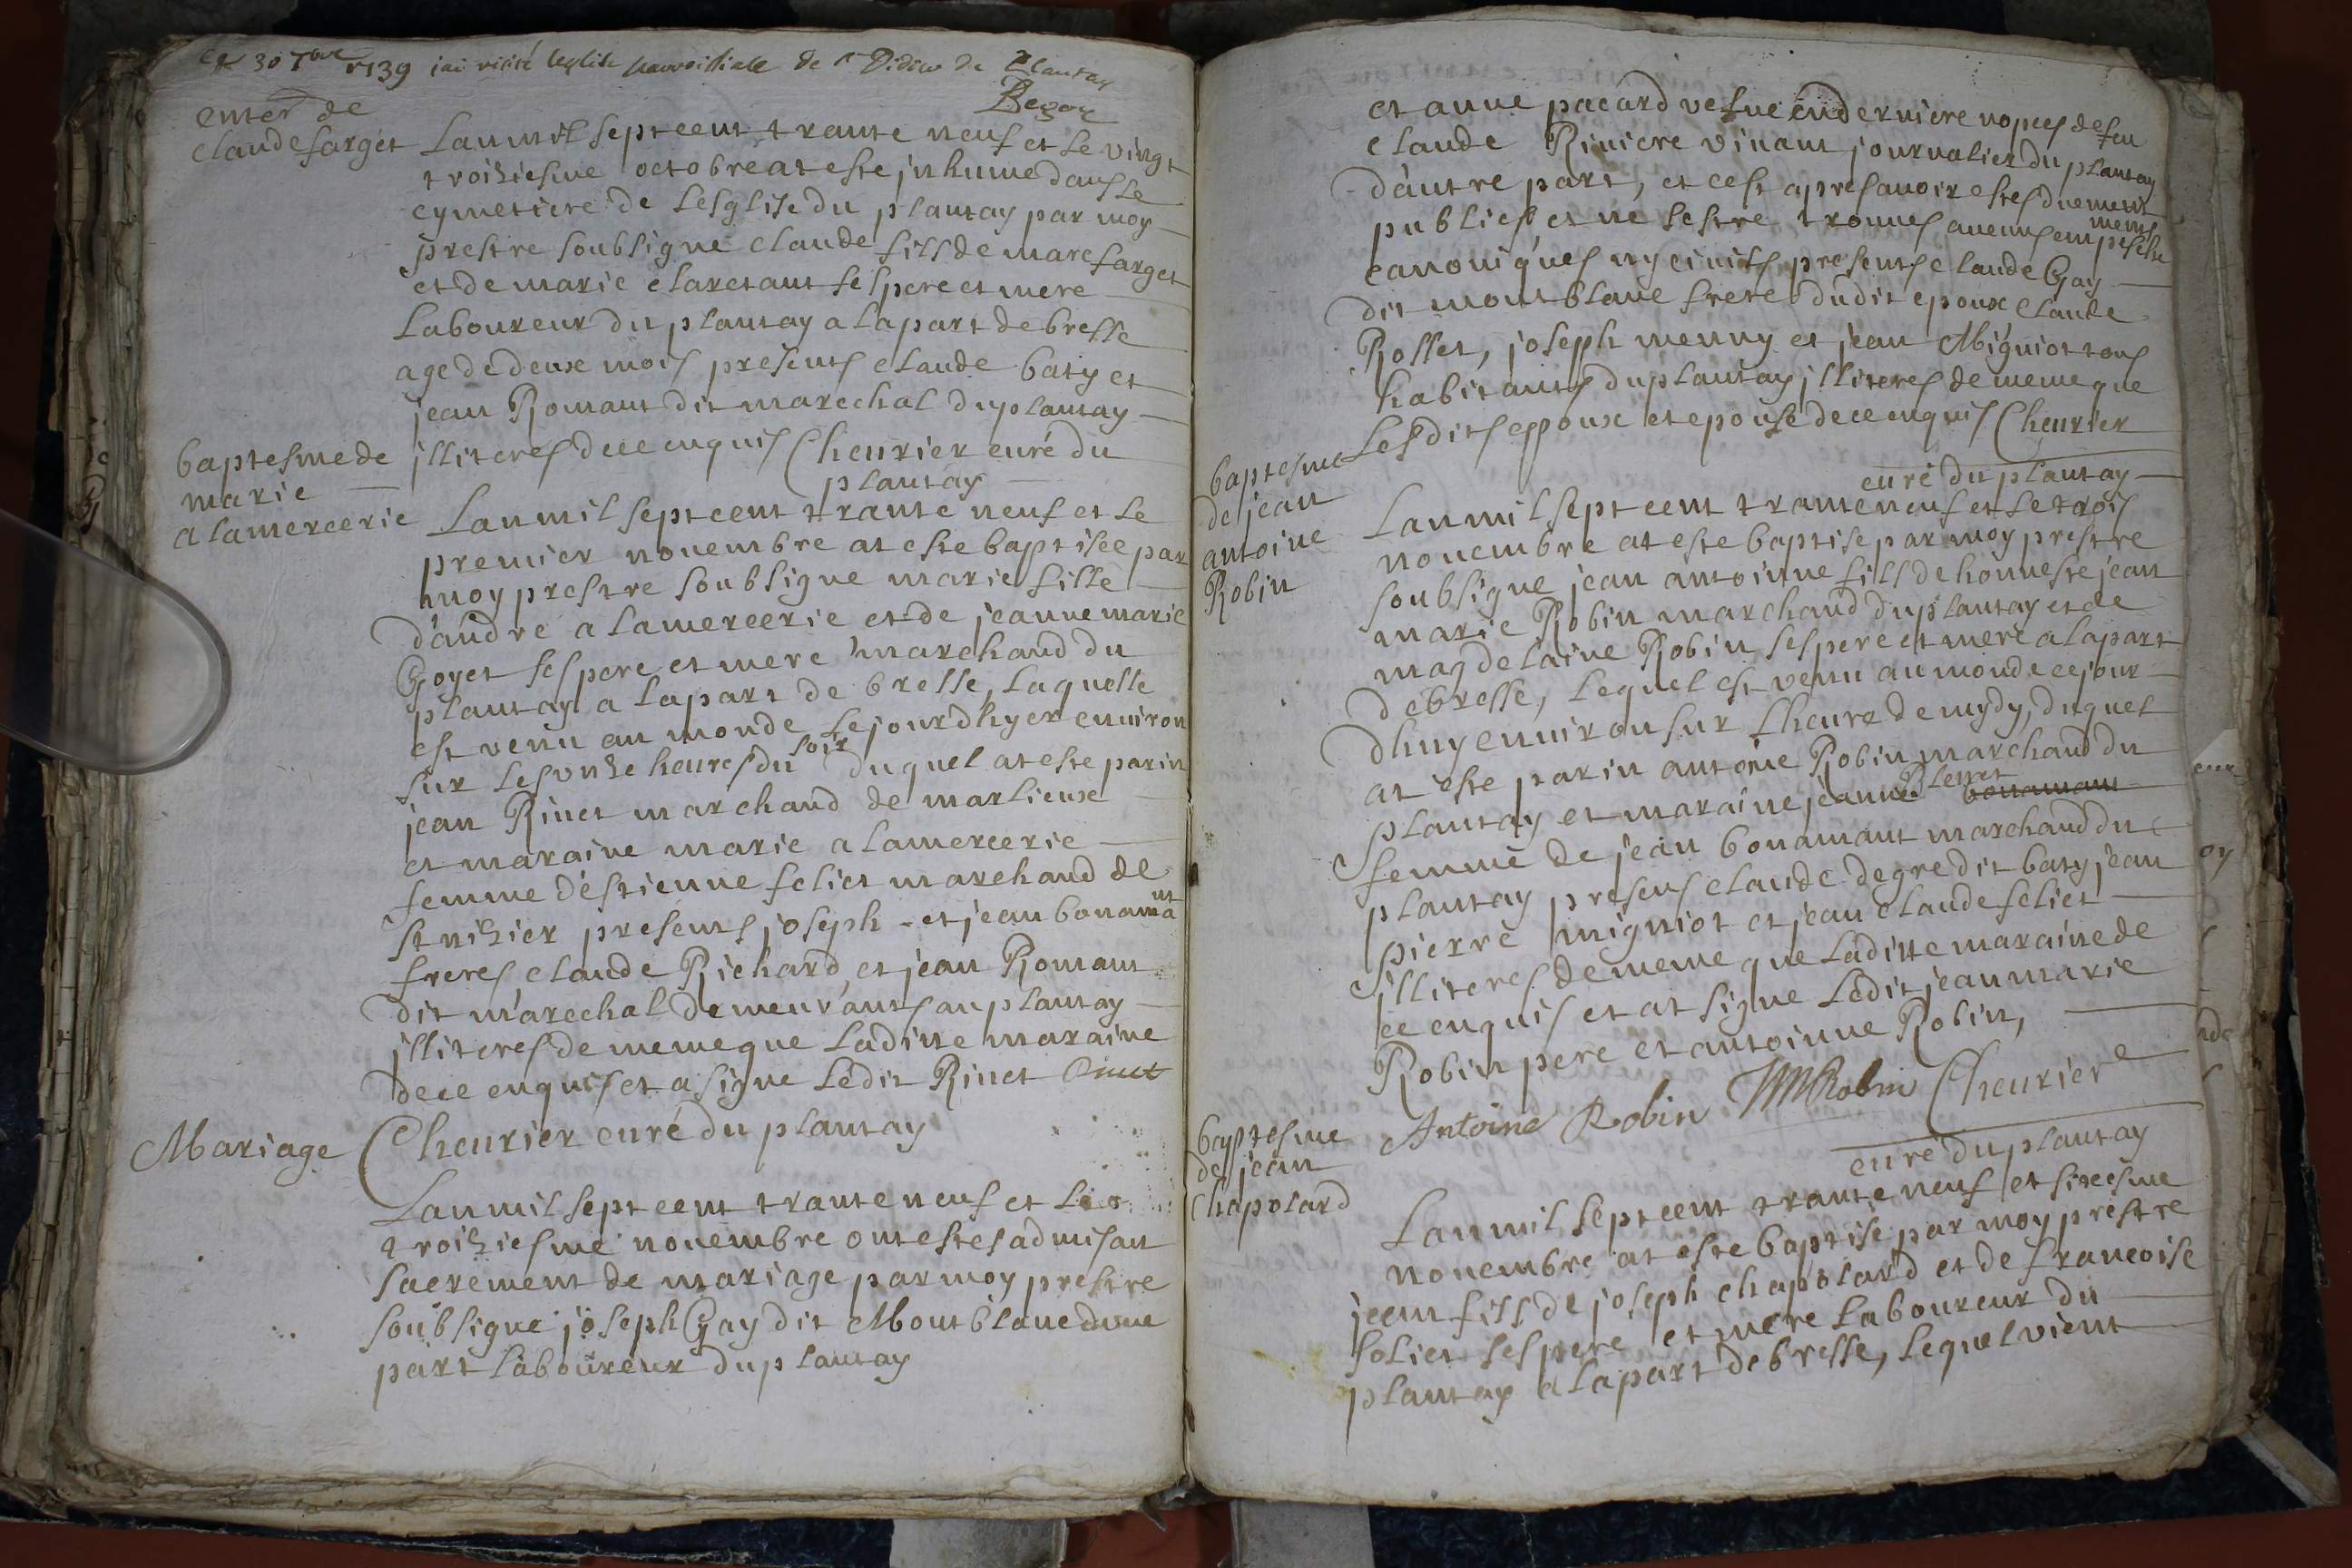 Ce 30 7bre 1739 iai visité leglise parroissiale de st Didier du Plantay
Begon
enter de
claude farget
Lan mil sept cent trante neuf et le vingt
troiziesme octobre at este jnhume dans le
cymetiere de lesglise du plantay par moy
prestre soubsigne claude fils de marc farget
et de marie claretant ses pere et mere
laboureur du plantay a la part de bresse
age de deux mois presents claude baty et
jean Romant dit marechal du plantay
jlliteres de ce enquis Cheurier curé du
plantay
baptesme de
marie
alamercerie
Lan mil sept cent trante neuf et le
premier nouembre at este baptisée par
moy prestre soubsigne marie fille
dandre alamercerie et de jeanne marie
Goyet ses pere et mere marchand du
plantay a la part de bresse, laquelle
est venu au monde le jourdhyer enuiron
sur les vnze heures du soir duquel at este parin
jean Rinet marchand de marlieux
et maraine marie alamercerie
femme destienne feliet marchand de
st nizier presents joseph et jean bonamant
freres claude Richard et jean Romant
dit marechal demeurants au plantay
jlliteres de meme que laditte maraine
de ce enquis et a signe ledit Rinet Rinet
Cheurier curé du plantay
Mariage
Lan mil sept cent trante neuf et le
troiziesme nouembre ont estes admis au
sacrement de mariage par moy prestre
soubsigne joseph Gay dit Montblanc dune
part laboureur du plantay
et anne pacard vefue en derniere nopces de feu
claude Riuiere viuant journalier du plantay
dautre part, et cest apres auoir estes duement
publies et ne sestre trouues aucuns empesche
ments
canoniques ny ciuils presents claude Gay
dit montblanc frere dudit epoux claude
Rollet, joseph menny et jean Migniot tous
habitants du plantay jlliteres de meme que
lesdits eppoux et epouse de ce enquis Cheurier
curé du plantay
baptesme
de jean
antoine
Robin
Lan mil sept cent trante neuf et le trois
nouembre at este baptise par moy prestre
soubsigne jean antoinne fils de honneste jean
marie Robin marchand du plantay et de
magdelaine Robin ses pere et mere a la part
de bresse, lequel est venu au monde ce jour
dhuy enuiron sur lheure de mydy, duquel
at este parin antoine Robin marchand du
plantay et maraine jeanne bonamant
femme de jean bonamant marchand du
plantay presens claude degre dit baty jean
pierre migniot et jean claude feliet
jlliteres de meme que laditte maraine de
ce enquis et at signe ledit jean marie
Robin pere et antoinne Robin,
Antoine Robin JMRobin Cheurier
curé du plantay
baptesme
de jean
chapolard
Lan mil sept cent trante neuf et sixcesme
nouembre at este baptise par moy prestre
jean fils de joseph chapolard et de francoise
solier ses pere et mere laboureur du
plantay a la part de bresse, lequel vient